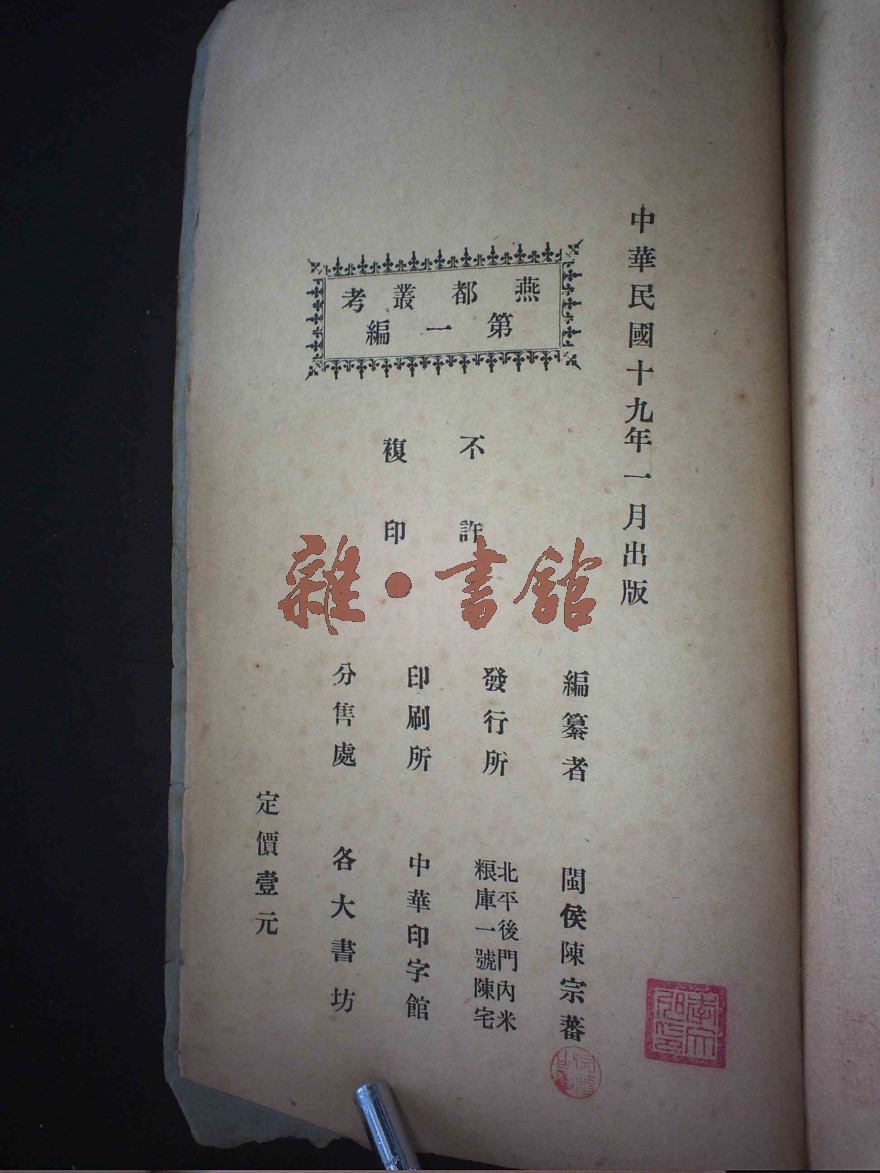 中華民國十九年一月出版
燕都叢考
第一編
不許
複印
編纂者　閩侯陳宗蕃
發行所　北平後門內米
粮庫一號陳宅
印刷所　中華印字館
分售處　各大書坊
定價壹元
雜·書館